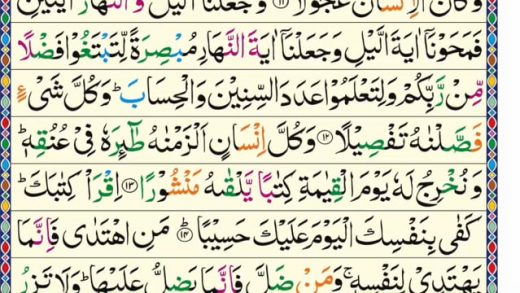 وَكَانَ الْاِنْسَانُ عَجُوْلًا ﴿۱۱﴾ وَجَعَلْنَا الَّيْلَ وَالنَّهَارَ اٰيَتَيْنِ
فَمَحَوْنَاۤ اٰيَةَ الَّيْلِ وَجَعَلْنَاۤ اٰيَةَ النَّهَارِ مُبْصِرَةً لِّتَبْتَغُوْا فَضْلًا
مِّنْ رَّبِّكُمْ وَلِتَعْلَمُوْا عَدَدَ السِّنِيْنَ وَالْحِسَابَ ؕ وَكُلَّ شَىْءٍ
فَصَّلْنٰهُ تَفْصِيْلًا ﴿۱۲﴾ وَكُلَّ اِنْسَانٍ اَلْزَمْنٰهُ طٰٓئِرَهٗ فِىْ عُنُقِهٖ ؕ
وَنُخْرِجُ لَهٗ يَوْمَ الْقِيٰمَةِ كِتٰبًا يَّلْقٰىهُ مَنْشُوْرًا ﴿۱۳﴾ اِقْرَاْ كِتٰبَكَ ؕ
كَفٰى بِنَفْسِكَ الْيَوْمَ عَلَيْكَ حَسِيْبًا ؕ ﴿۱۴﴾ مَنِ اهْتَدٰى فَاِنَّمَا
يَهْتَدِىْ لِنَفْسِهٖ ۚ وَمَنْ ضَلَّ فَاِنَّمَا يَضِلُّ عَلَيْهَا ؕ وَلَا تَزِرُ